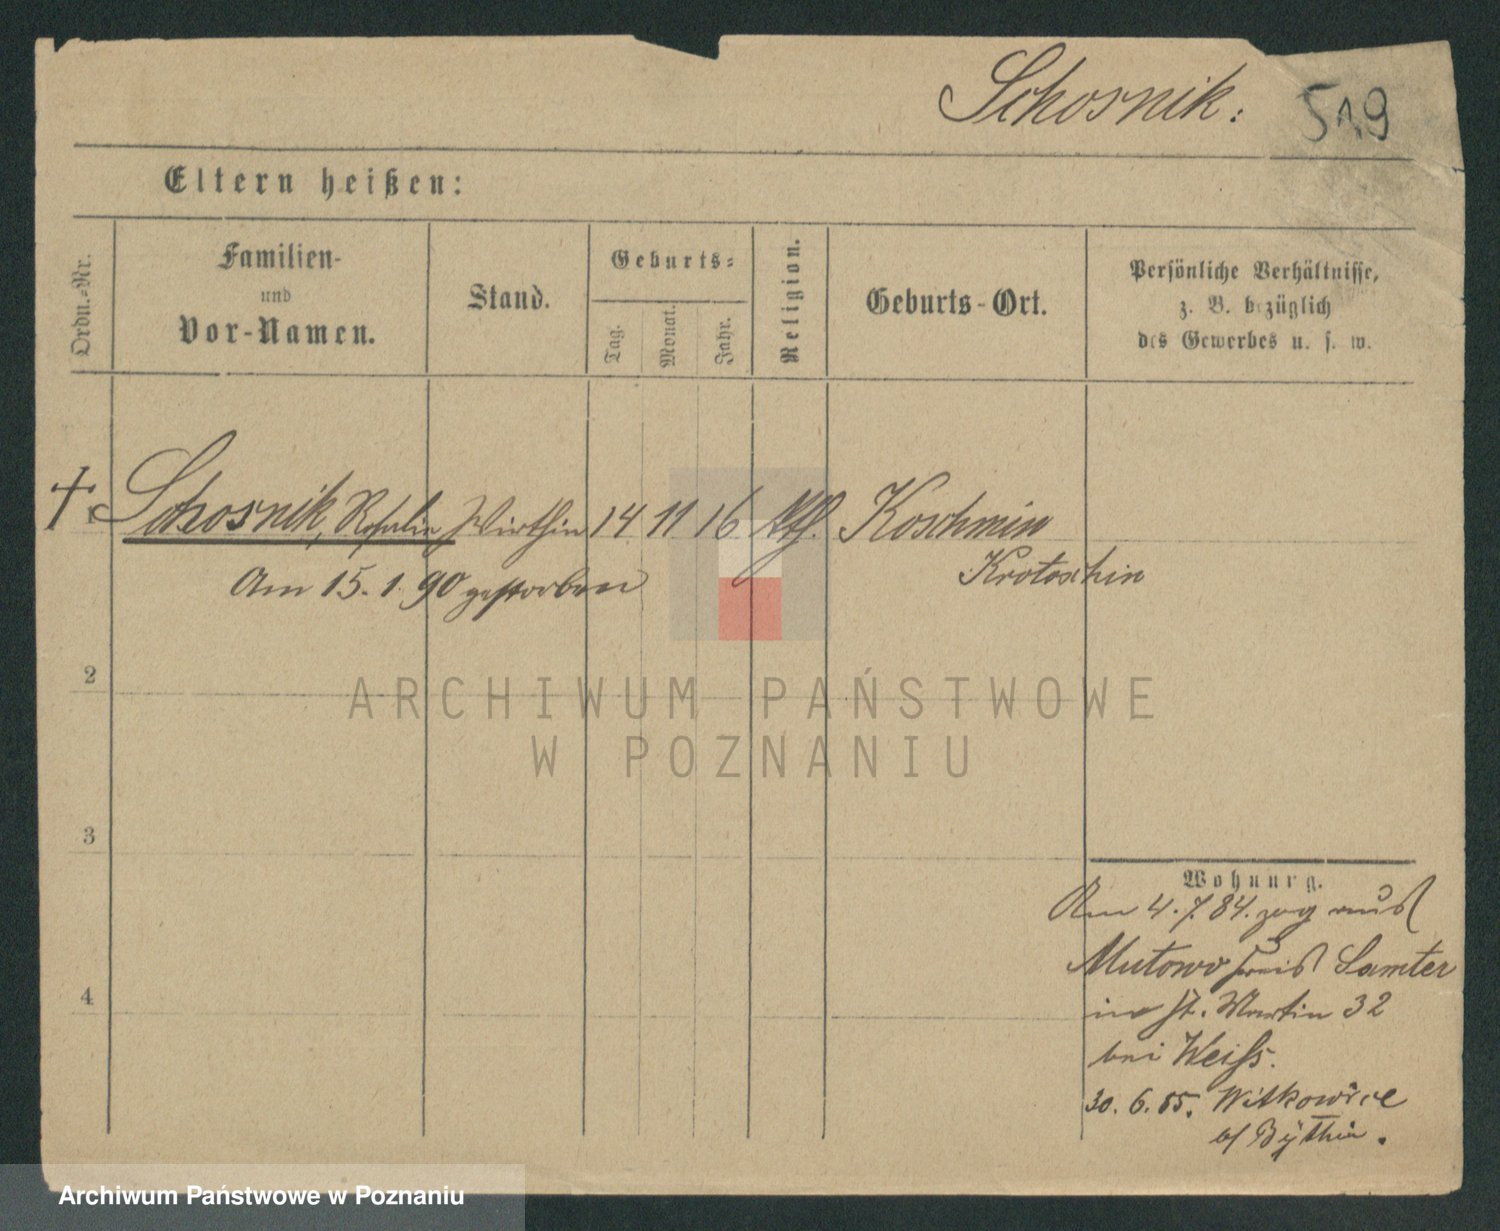 Schosnik:
519
Eltern heißen:
Ordn.-Nr.
Familien-
und
Vor-Namen.
Stand.
Geburts-
Tag.
Monat.
Jahr.
Religion.
Geburts-Ort.
Persönliche Verhältnisse,
z. B. bezüglich
des Gewerbes u. s. w.
† 1 Schosnik, Rosalie Wirthin 14 11 16 kth. Koschmin
Krotoschin
Am 15. 1. 90 gestorben
2
ARCHIWUM PAŃSTWOWE
W POZNANIU
3
4
Wohnung.
Am 4. 7. 84. zog aus
Mutowo Kreis Samter
in St. Martin 32
bei Weiss.
30. 6. 85. Witkowice
b/ Bythin.
Archiwum Państwowe w Poznaniu